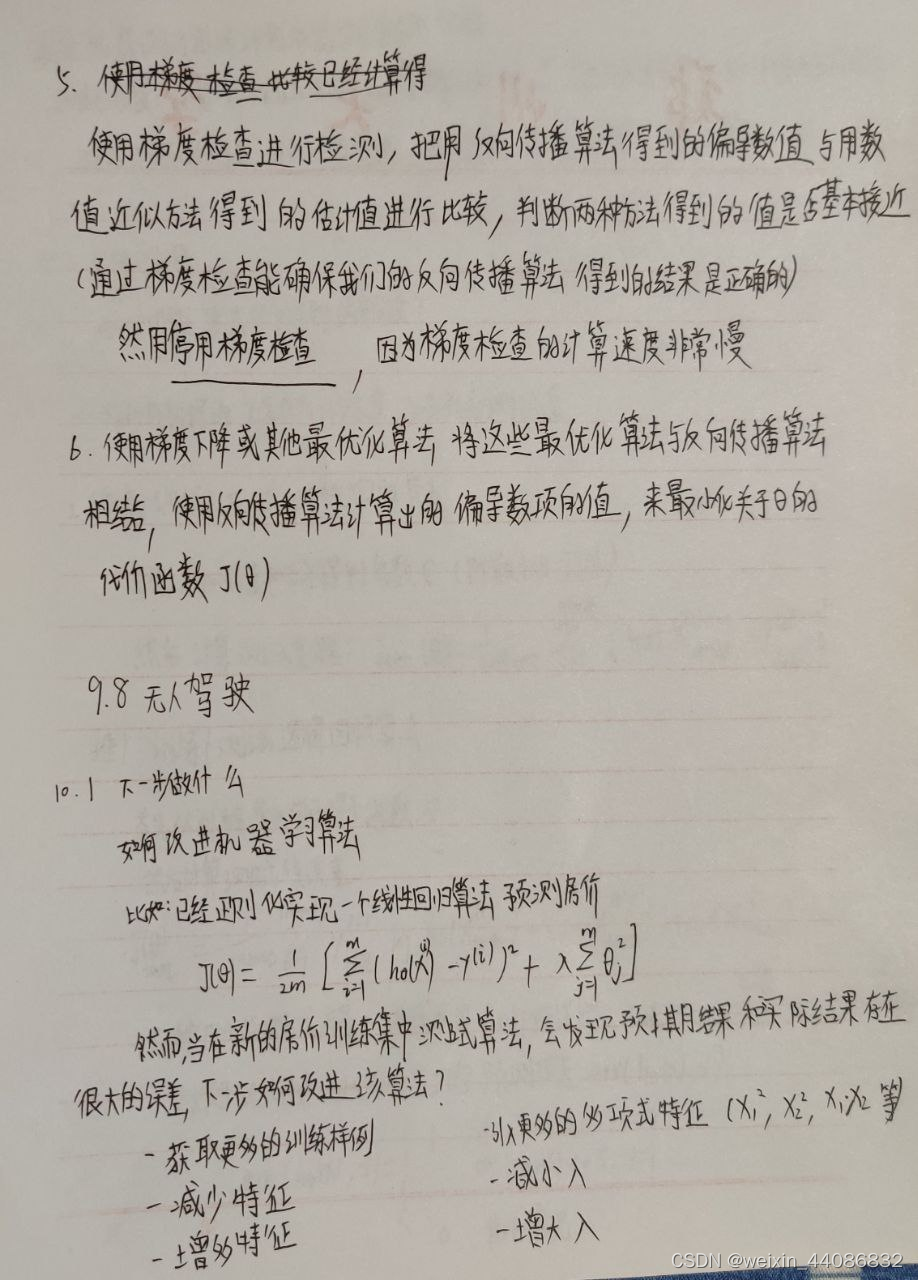 5. 使用梯度检查比较已经计算得
使用梯度检查进行检测,把用反向传播算法得到的偏导数值与用数
值近似方法得到的估计值进行比较,判断两种方法得到的值是否基本接近
(通过梯度检查能确保我们的反向传播算法得到的结果是正确的)
然用停用梯度检查,因为梯度检查的计算速度非常慢
6. 使用梯度下降或其他最优化算法 将这些最优化算法与反向传播算法
相结合,使用反向传播算法计算出的偏导数项的值,来最小化关于θ的
代价函数 J(θ)
9.8 无人驾驶
10.1 下一步做什么
如何改进机器学习算法
比如:已经正则化实现一个线性回归算法预测房价
J(θ) = 1/2m [ ∑_{i=1}^{m} (hθ(x^{(i)}) - y^{(i)})² + λ ∑_{j=1}^{m} θ_j² ]
然而,当在新的房价训练集中测试算法,会发现预期结果和实际结果存在
很大的误差,下一步如何改进该算法?
- 获取更多的训练样例
- 减少特征
- 增多特征
- 引入更多的多项式特征 (x₁², x₂², x₁x₂ 等)
- 减小 λ
- 增大 λ
CSDN @weixin_44086832